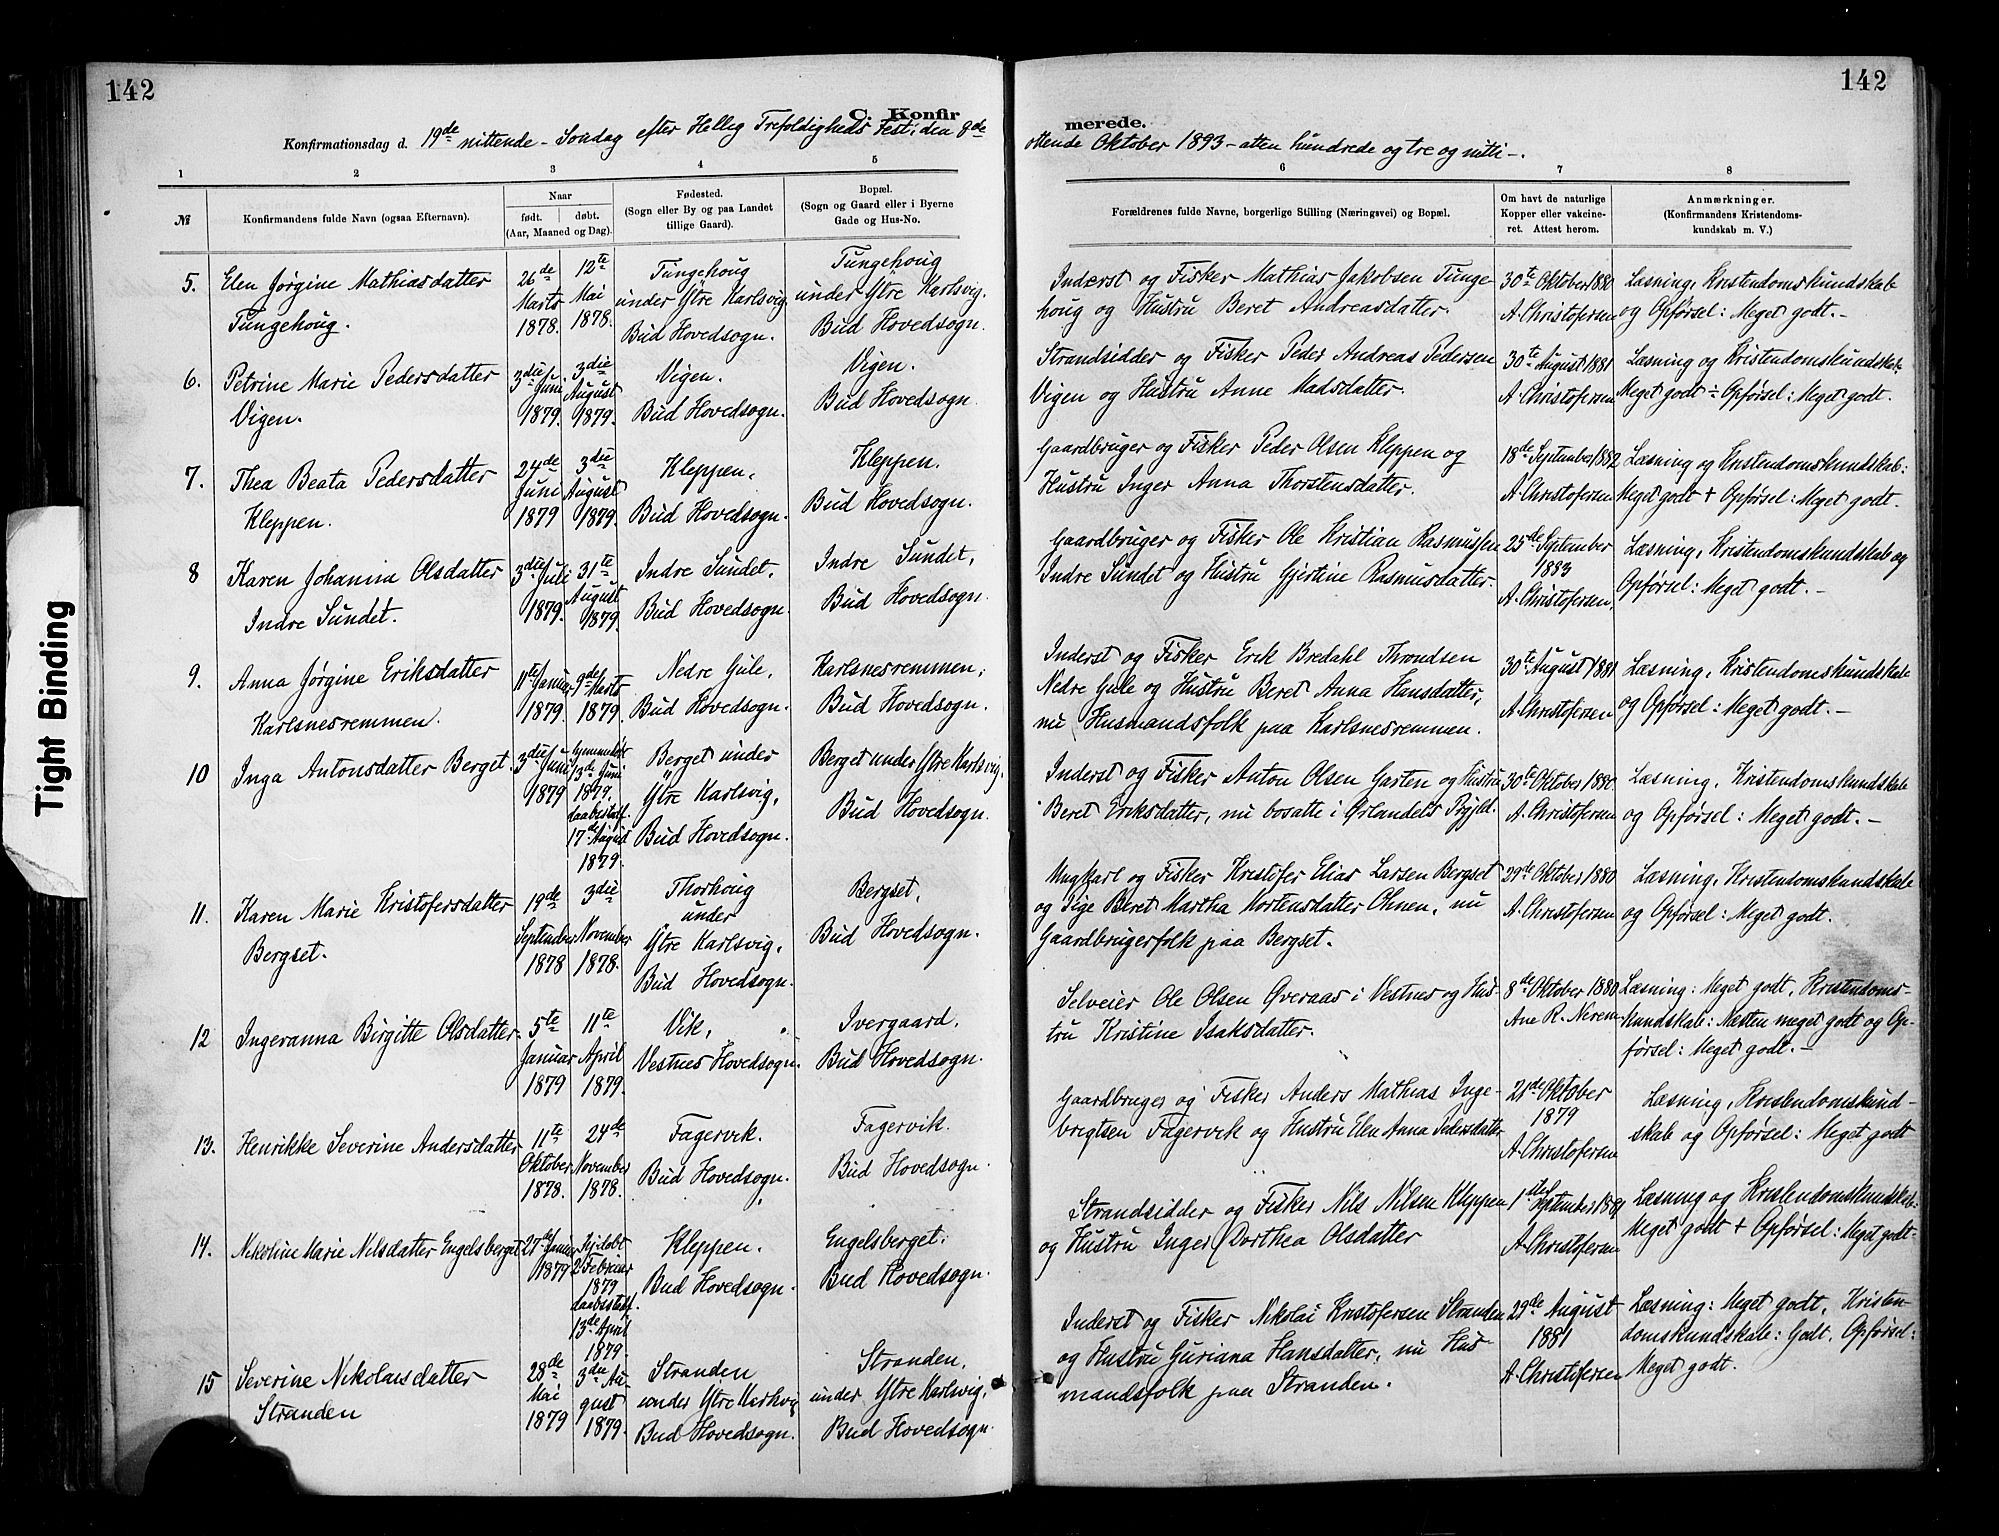 142
C. Konfir
Konfirmationsdag d. 19de nittende - Søndag efter Hellig Trefoldigheds Fest, den 8de
1 2 3 4 5
№
Konfirmandens fulde Navn (ogsaa Efternavn).
Naar
født. døbt.
(Aar, Maaned og Dag).
Fødested.
(Sogn eller By og paa Landet
tillige Gaard).
Bopæl.
(Sogn og Gaard eller i Byerne
Gade og Hus-No.
5. Elen Jørgine Mathiasdatter
Tungehoug.
26de
Marts
1878.
12te
Mai
1878.
Tungehoug
under Ytre Karlsvig,
Bud Hovedsogn.
Tungehoug
under Ytre Karlsvig.
Bud Hovedsogn.
6. Petrine Marie Pedersdatter
Vigen.
3die Juni
1879.
3die
August
1879.
Vigen.
Bud Hovedsogn.
Vigen.
Bud Hovedsogn.
7. Thea Beata Pedersdatter
Kleppen.
24de
Juni
1879
3die
August
1879.
Kleppen,
Bud Hovedsogn.
Kleppen.
Bud Hovedsogn.
8 Karen Johanna Olsdatter
Indre Sundet.
3die Juli
1879.
31te
August
1879.
Indre Sundet,
Bud Hovedsogn.
Indre Sundet,
Bud Hovedsogn.
9. Anna Jørgine Eriksdatter
Karlsnesremmen.
11te Januar
1879.
9de Marts
1879.
Nedre Gule,
Bud Hovedsogn.
Karlsnesremmen,
Bud Hovedsogn.
10 Inga Antonsdatter Berget.
3die Juni
1879
hjemmedøbt
13de Juni
1879.
daabstadf.
17de August
1879.
Berget under
Ytre Karlsvig,
Bud Hovedsogn.
Berget under Ytre Karlsvig,
Bud Hovedsogn.
11. Karen Marie Kristofersdatter
Bergset.
19de
September
1878
3die
November
1878.
Thorhoug
under
Ytre Karlsvig,
Bud Hovedsogn.
Bergset,
Bud Hovedsogn.
12 Ingeranna Birgitte Olsdatter.
5te
Januar
1879
11te
April
1879.
Vik,
Vestnes Hovedsogn.
Ivergaard,
Bud Hovedsogn.
13. Henrikke Severine Andersdatter
11te
Oktober
1878.
24de
November
1878.
Fagervik.
Bud Hovedsogn.
Fagervik.
Bud Hovedsogn.
14. Nikoline Marie Nilsdatter Engelsberget.
27de Januar
1879
Hjdøbt
2 Februar
1879
daabsstadf.
13de April
1879.
Kleppen.
Bud Hovedsogn.
Engelsberget.
Bud Hovedsogn.
15 Severine Nikolaisdatter
Stranden
28de
Mai
1879
3die Au-
gust
1879.
Stranden
under Ytre Karlsvig
Bud Hovedsogn.
Stranden,
under Ytre Karlsvig,
Bud Hovedsogn.
142
merede.
ottende Oktober 1893 - atten hundrede og tre og nitti -.
6 7 8
Forældrenes fulde Navne, borgerlige Stilling (Næringsvei) og Bopæl.
Om havt de naturlige
Kopper eller vakcine-
ret. Attest herom.
Anmærkninger.
(Konfirmandens Kristendoms-
kundskab m. V.)
Inderst og Fisker Mathias Jakobsen Tunge-
houg og Hustru Beret Andreasdatter.
30te Oktober 1880
A. Christofersen
Læsning, Kristendomskundskab
og Opførsel: Meget godt. -
Strandsidder og Fisker Peder Andreas Pedersen
Vigen og Hustru Anne Madsdatter.
30te August 1881
A. Christofersen
Læsning og Kristendomskundskab
Meget godt ÷ Opførsel: Meget godt.
Gaardbruger og Fisker Peder Olsen Kleppen og
Hustru Inger Anna Thorstensdatter.
18de September 1882
A. Christofersen
Læsning og Kristendomskundskab:
Meget godt + Opførsel: Meget godt.
Gaardbruger og Fisker Ole Kristian Rasmussen
Indre Sundet og Hustru Gjertine Rasmusdatter.
25de September
1883
A. Christofersen
Læsning, Kristendomskundskab og
Opførsel: Meget godt. -
Inderst og Fisker Erik Bredahl Throndsen
Nedre Gule og Hustru Beret Anna Hansdatter,
nu Husmandsfolk paa Karlsnesremmen.
30te August 1881
A. Christofersen
Læsning, Kristendomskundskab
og Opførsel: Meget godt. -
Inderst og Fisker Anton Olsen Garten og Hustru
Beret Eriksdatter, nu bosatte i Ørlandets Prgjld.
30te Oktober 1880.
A. Christofersen
Læsning, Kristendomskundskab
og Opførsel: Meget godt. -
Ungkarl og Fisker Kristofer Elias Larsen Bergset
og Pige Beret Martha Mortensdatter Ohnen, nu
Gaardbrugerfolk paa Bergset.
29de Oktober 1880
A. Christofersen
Læsning, Kristendomskundskab
og Opførsel: Meget godt.
Selveier Ole Olsen Øveraas i Vestnes og Hus-
tru Kristine Isaksdatter.
8de Oktober 1880
Ane R. Nerem
Læsning: Meget godt, Kristendoms-
kundskab: Næsten meget godt og Op-
førsel: Meget godt. -
Gaardbruger og Fisker Anders Mathias Inge-
brigtsen Fagervik og Hustru Elen Anna Pedersdatter
21de Oktober
1879
A. Christofersen
Læsning, Kristendomskund-
skab og Opførsel: Meget godt
Strandsidder og Fisker Nils Nilsen Kleppen
og Hustru Inger Dorthea Olsdatter
1ste September 1881
A. Christofersen
Læsning og Kristendomskundskab:
Meget godt + Opførsel: Meget godt.
Inderst og Fisker Nikolai Kristofersen Stranden
og Hustru Guriana Hansdatter, nu Hus-
mandsfolk paa Stranden.
29de August
1881
A. Christofersen
Læsning: Meget godt, Kristen-
domskundskab: Godt, Opførsel:
Meget godt.
Tight Binding